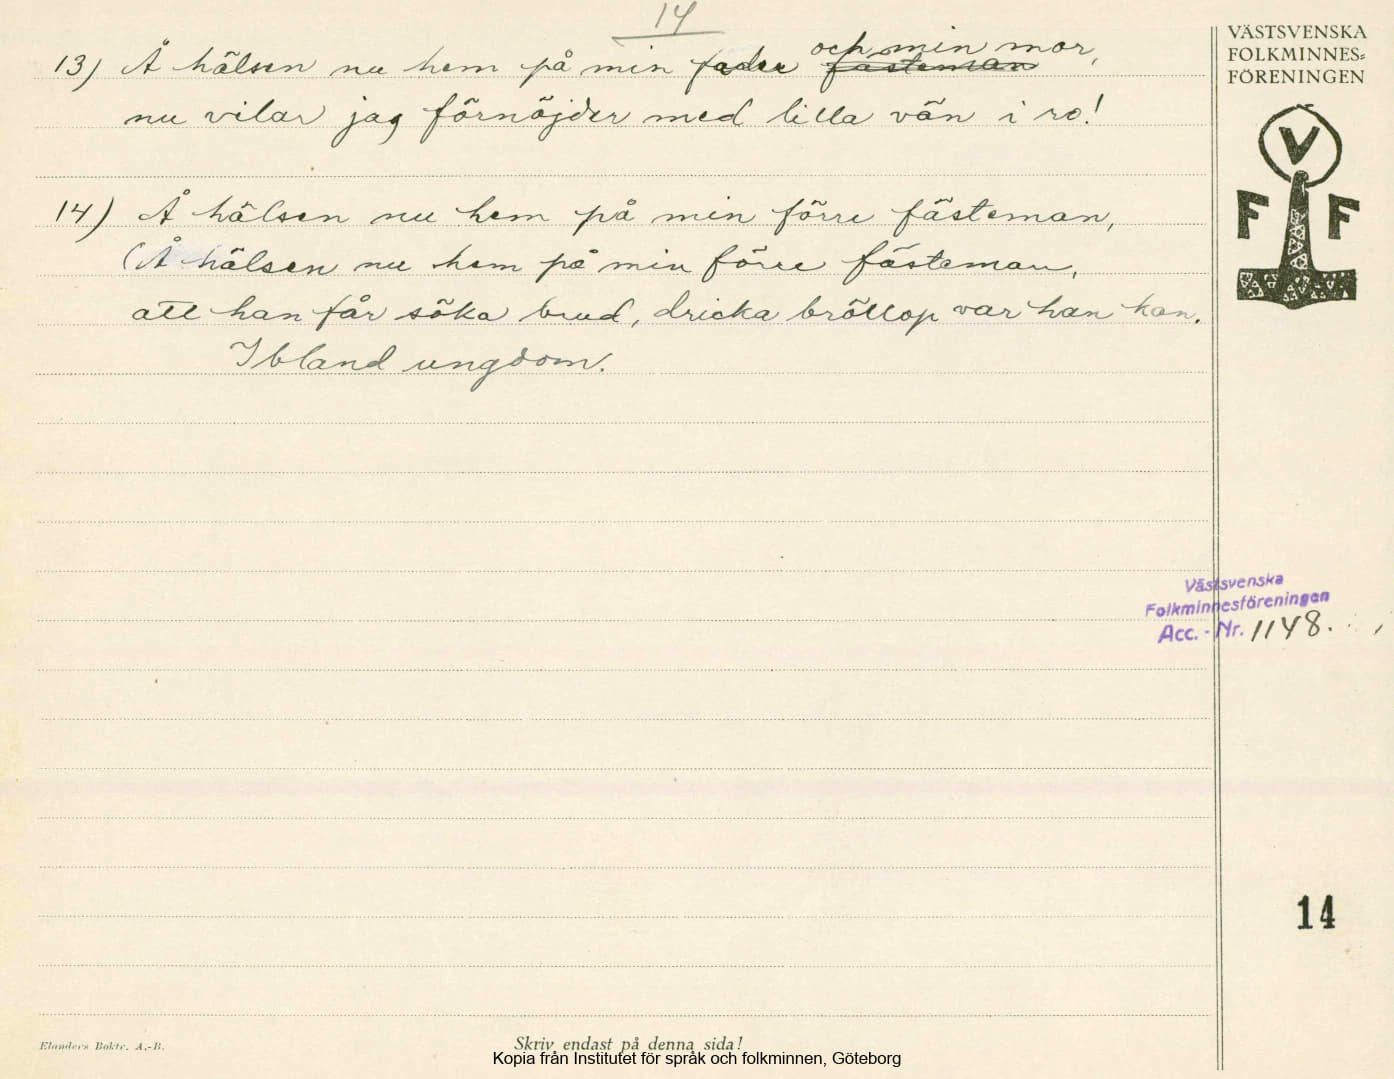 14
13) Å hälsen nu hem på min fader fästeman och min mor,
nu vilar jag förnöjder med lilla vän i ro!
14) Å hälsen nu hem på min förre fästeman,
(Å hälsen nu hem på min förre fästeman,
att han får söka brud, dricka bröllop var han kan.
Ibland ungdom.
VÄSTSVENSKA
FOLKMINNES=
FÖRENINGEN
V
F F
Västsvenska
Folkminnesföreningen
Acc.-Nr. 1148.
14
Elanders Boktr. A.-B.
Skriv endast på denna sida!
Kopia från Institutet för språk och folkminnen, Göteborg